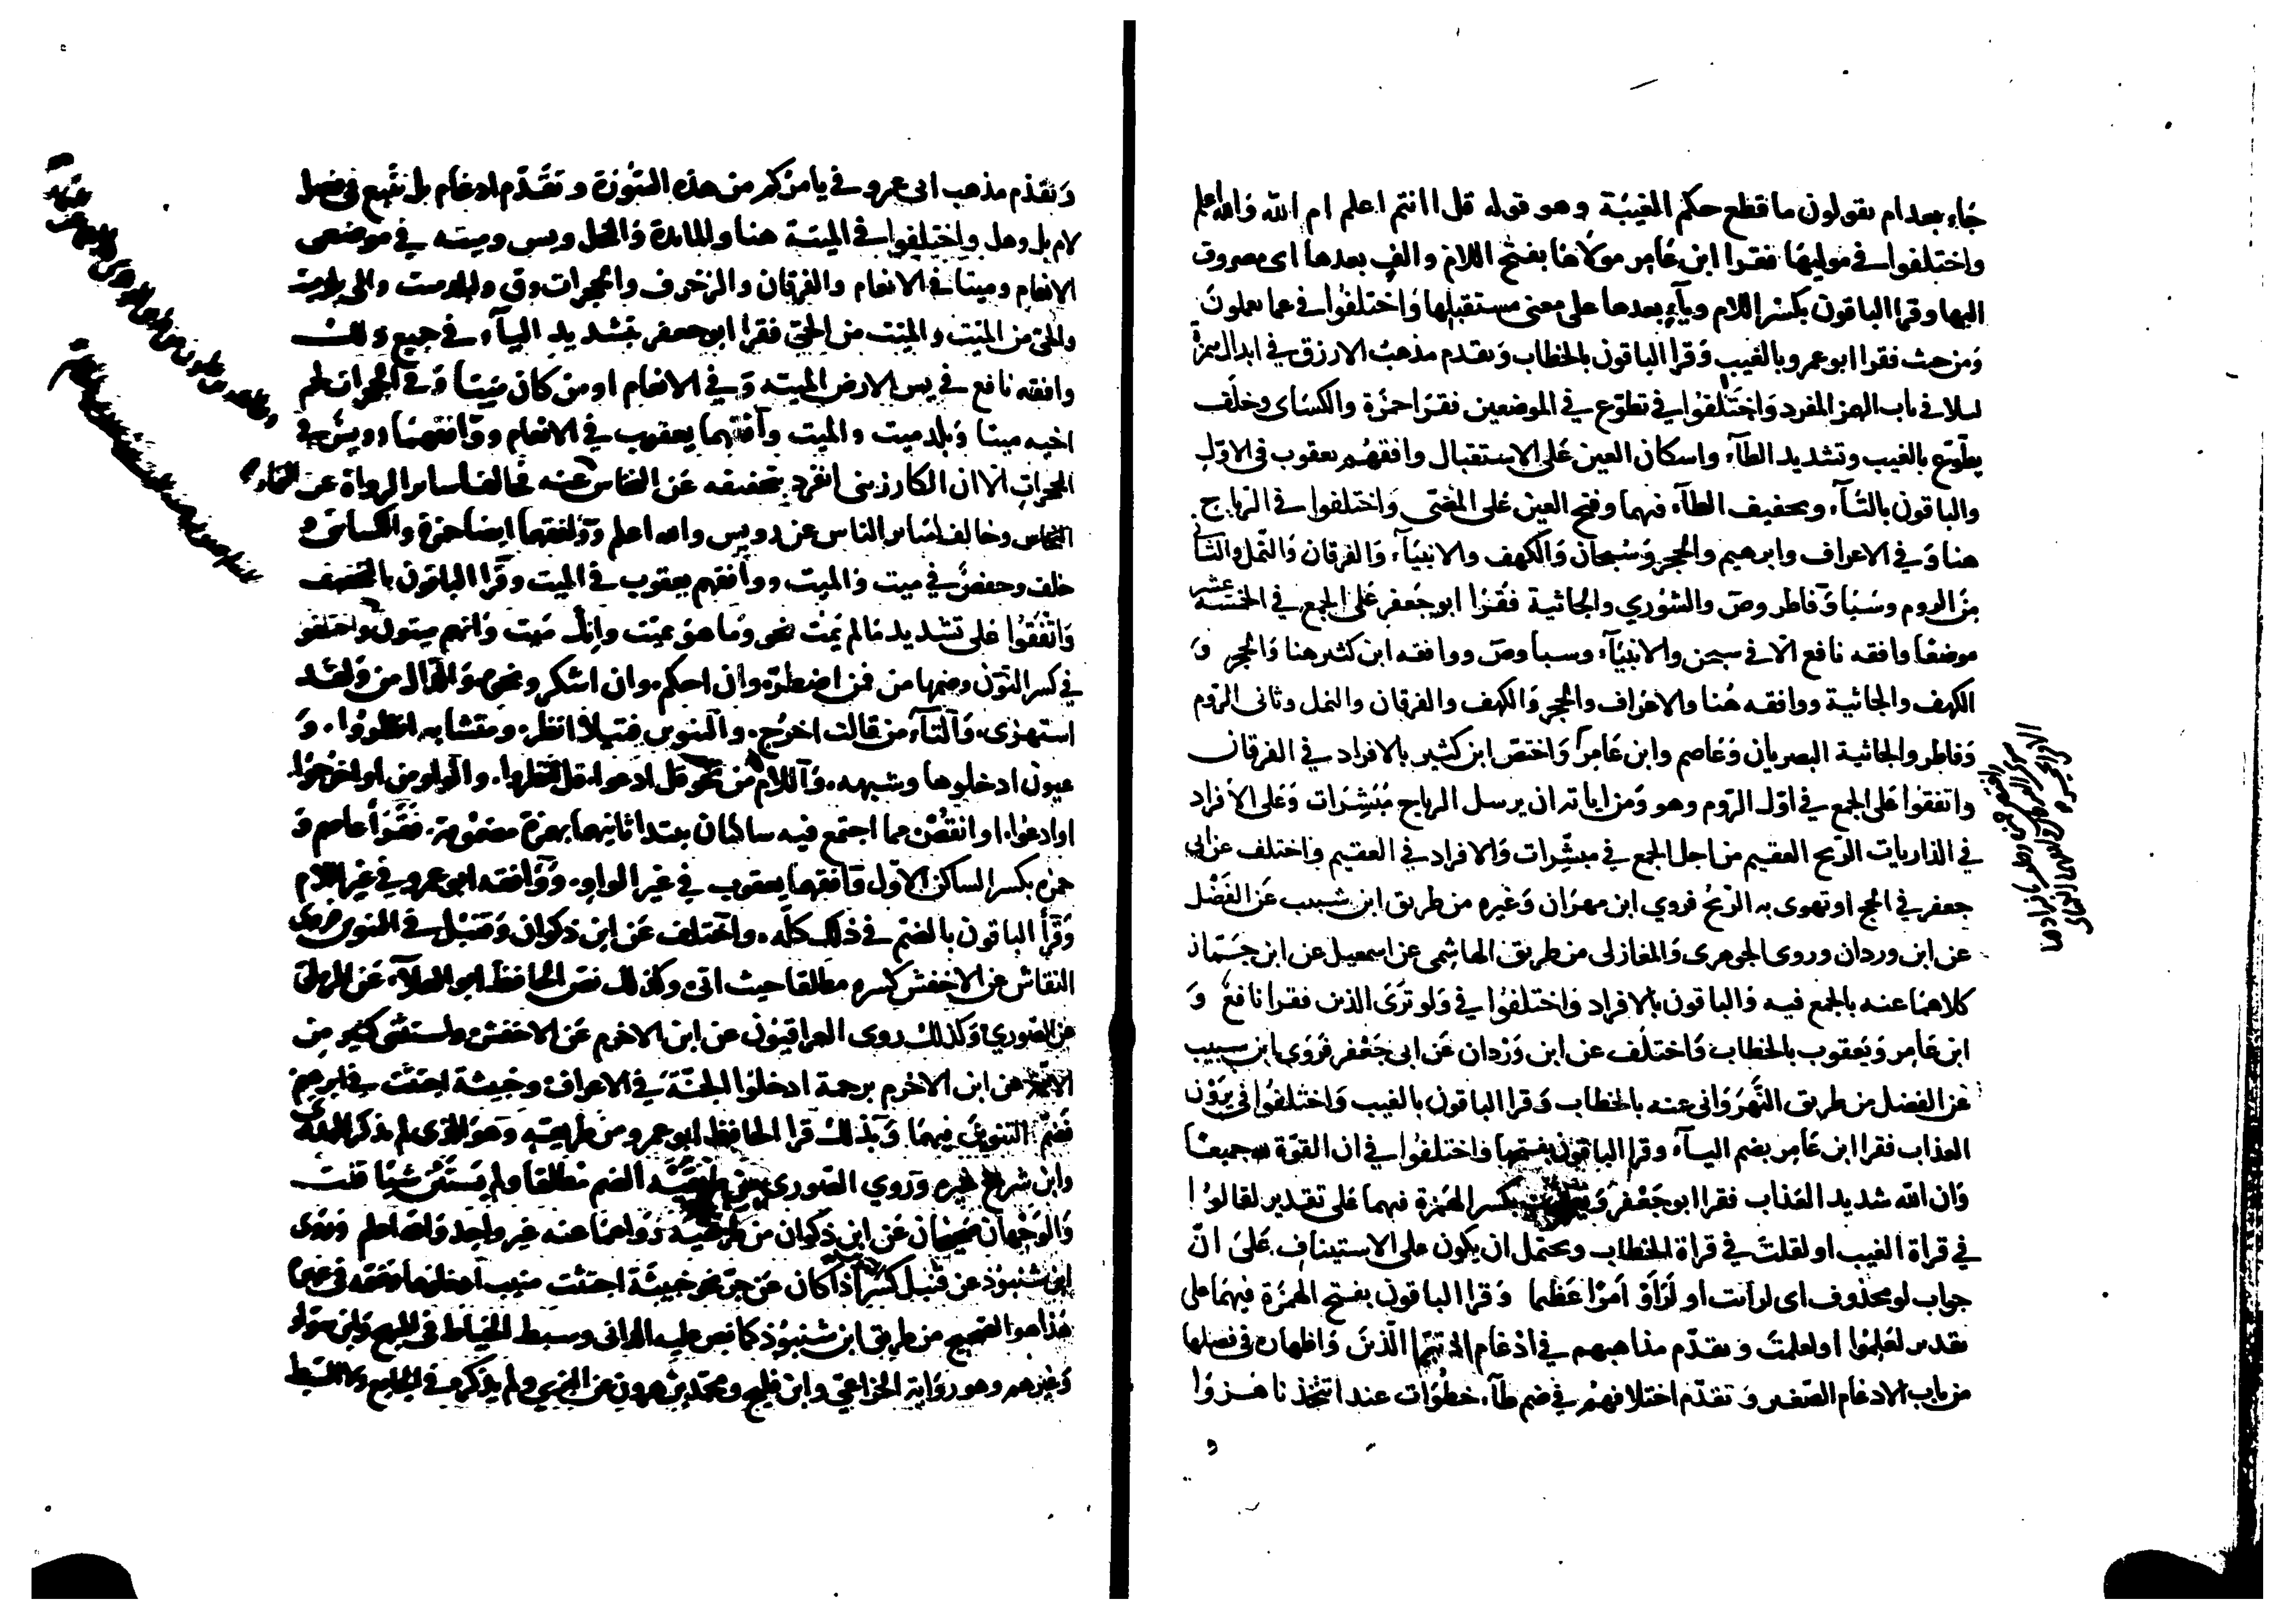 جاء بعد ام يقولون ما قطع حكم الغيبة وهو قوله قل اانتم اعلم ام الله والله اعلم
واختلفوا في موليها فقرا ابن عامر مولاها بفتح اللام والف بعدها اى مصروف
اليها وقرا الباقون بكسر اللام وياء بعدها على معنى مستقبلها واختلفوا في عما يعملون
ومن حيث فقرا ابو عمرو بالغيب وقرا الباقون بالخطاب وتقدم مذهب الازرق في ابدال همزة
ليلا في باب الهمز المفرد واختلفوا في تطوع في الموضعين فقرا حمزة والكساى وخلف
يطوع بالغيب وتشديد الطآء واسكان العين على الاستقبال وافقهم يعقوب في الاول
والباقون بالتآء وتخفيف الطآء فيهما وفتح العين على المضى واختلفوا في الرياح
هنا وفي الاعراف وابرهيم والحجر وسبحان والكهف والانبيآء والفرقان والنمل والثانى
من الروم وسبا وفاطر وص والشوري والجاثية فقرا ابو جعفر على الجمع في الخمسة عشر
موضعا وافقه نافع الا في سبحن والانبيآء وسبا وص ووافقه ابن كثير هنا والحجر و
الكهف والجاثية ووافقه هنا والاعراف والحجر والكهف والفرقان والنمل وثانى الروم
وفاطر والجاثية البصريان وعاصم وابن عامر واختص ابن كثير بالافراد في الفرقان
واتفقوا على الجمع في اول الروم وهو ومن اياته ان يرسل الرياح مبشرات وعلى الافراد
في الذاريات الريح العقيم من اجل الجمع في مبشرات والافراد في العقيم واختلف عن ابى
جعفر في الحج او تهوى به الريح فروي ابن مهران وغيره من طريق ابن شبيب عن الفضل
عن ابن وردان وروى الجوهرى والمغازلى من طريق الهاشمى عن اسمعيل عن ابن جماز
كلاهما عنه بالجمع فيه والباقون بالافراد واختلفوا في ولو ترى الذين فقرا نافع و
ابن عامر ويعقوب بالخطاب واختلف عن ابن وردان عن ابى جعفر فروى ابن شبيب
عن الفضل من طريق النهروانى عنه بالخطاب وقرا الباقون بالغيب واختلفوا في يرون
العذاب فقرا ابن عامر بضم اليآء وقرا الباقون بفتحها واختلفوا في ان القوة لله جميعا
وان الله شديد العذاب فقرا ابو جعفر ويعقوب بكسر الهمزة فيهما على تقدير لقالوا
في قراة الغيب او لقلت في قراة الخطاب ويحتمل ان يكون على الاستيناف على ان
جواب لو محذوف اى لرايت او لراوا امرا عظيما وقرا الباقون بفتح الهمزة فيهما على
تقدير لعلموا او لعلمت وتقدم مذاهبهم في ادغام اذ تبرا الذين واظهاره في فصلها
من باب الادغام الصغير وتقدم اختلافهم في ضم طآء خطوات عند اتتخذنا هزوا
وتقدم مذهب ابى عمرو في يامركم من هذه السورة وتقدم ادغام بل نتبع في فصل
لام بل وهل واختلفوا في الميتة هنا والمايدة والنحل ويس وميته في موضعى
الانعام وميتا في الانعام والفرقان والزخرف والحجرات وق
والحى من الميت والميت من الحى فقرا ابو جعفر بتشديد اليآء في جميع ذلك
وافقه نافع في يس الارض الميته وفي الانعام او من كان ميتا وفي الحجرات لحم
اخيه ميتا وبلد ميت والميت وافقهما يعقوب في الانعام ووافقهما رويس في
الحجرات الا ان الكارزينى انفرد بتخفيفه عن النخاس عنه فخالف ساير الرواة عن
النخاس وخالف ساير الناس عن رويس والله اعلم ووافقهما ايضا حمزة والكسائى و
خلف وحفص في ميت والميت ووافقهم يعقوب في الميت وقرا الباقون بالتخفيف
واتفقوا على تشديد ما لم يمت نحو وما هو بميت وانك ميت وانهم ميتون واختلفوا
في كسر النون وضمها من فمن اضطر وان احكم وان اشكر ونحوه والدال من ولقد
استهزى والتآء من قالت اخرج والتنوين فتيلا انظر ومتشابه انظروا و
عيون ادخلوها وشبهه واللام من نحو قل ادعوا قل انظروا والواو من او اخرجوا
او ادعوا او انقص مما اجتمع فيه ساكنان يبتدا ثانيهما بهمزة مضمومة فقرا عاصم و
حمزه بكسر الساكن الاول وافقهما يعقوب في غير الواو ووافقه ابو عمرو في غير اللام
وقرأ الباقون بالضم في ذلك كله واختلف عن ابن ذكوان وقنبل في التنوين فروى
النقاش عن الاخفش كسره مطلقا حيث اتى وكذلك نص الحافظ ابو العلآء عن الرملى
عن الصوري وكذلك روى العراقيون عن ابن الاخرم عن الاخفش واستثنى كثير من
الائمة عن ابن الاخرم برحمة ادخلوا الجنة في الاعراف وخبيثة اجتثت في ابرهيم
فضم التنوين فيهما وبذلك قرا الحافظ ابو عمرو من طريقه وهو الذى لم يذكر المهدوى
وابن شريح غيره وروي الصورى من طريقيه الضم مطلقا ولم يستثن شيئا قلت
والوجهان صحيحان عن ابن ذكوان من طريقيه رواهما عنه غير واحد والله اعلم وروى
ابن شنبوذ عن قنبل كسر اذا كان عن جر نحو خبيثة اجتثت منيب ادخلوها
هذا هو الصحيح من طريق ابن شنبوذ كما نص عليه الدانى وسبط الخياط في المبهج وابن سوار
وغيرهم وهو رواية الخزاعى وابن فليح ومحمد بن هرون عن البزي ولم يذكره في الجامع